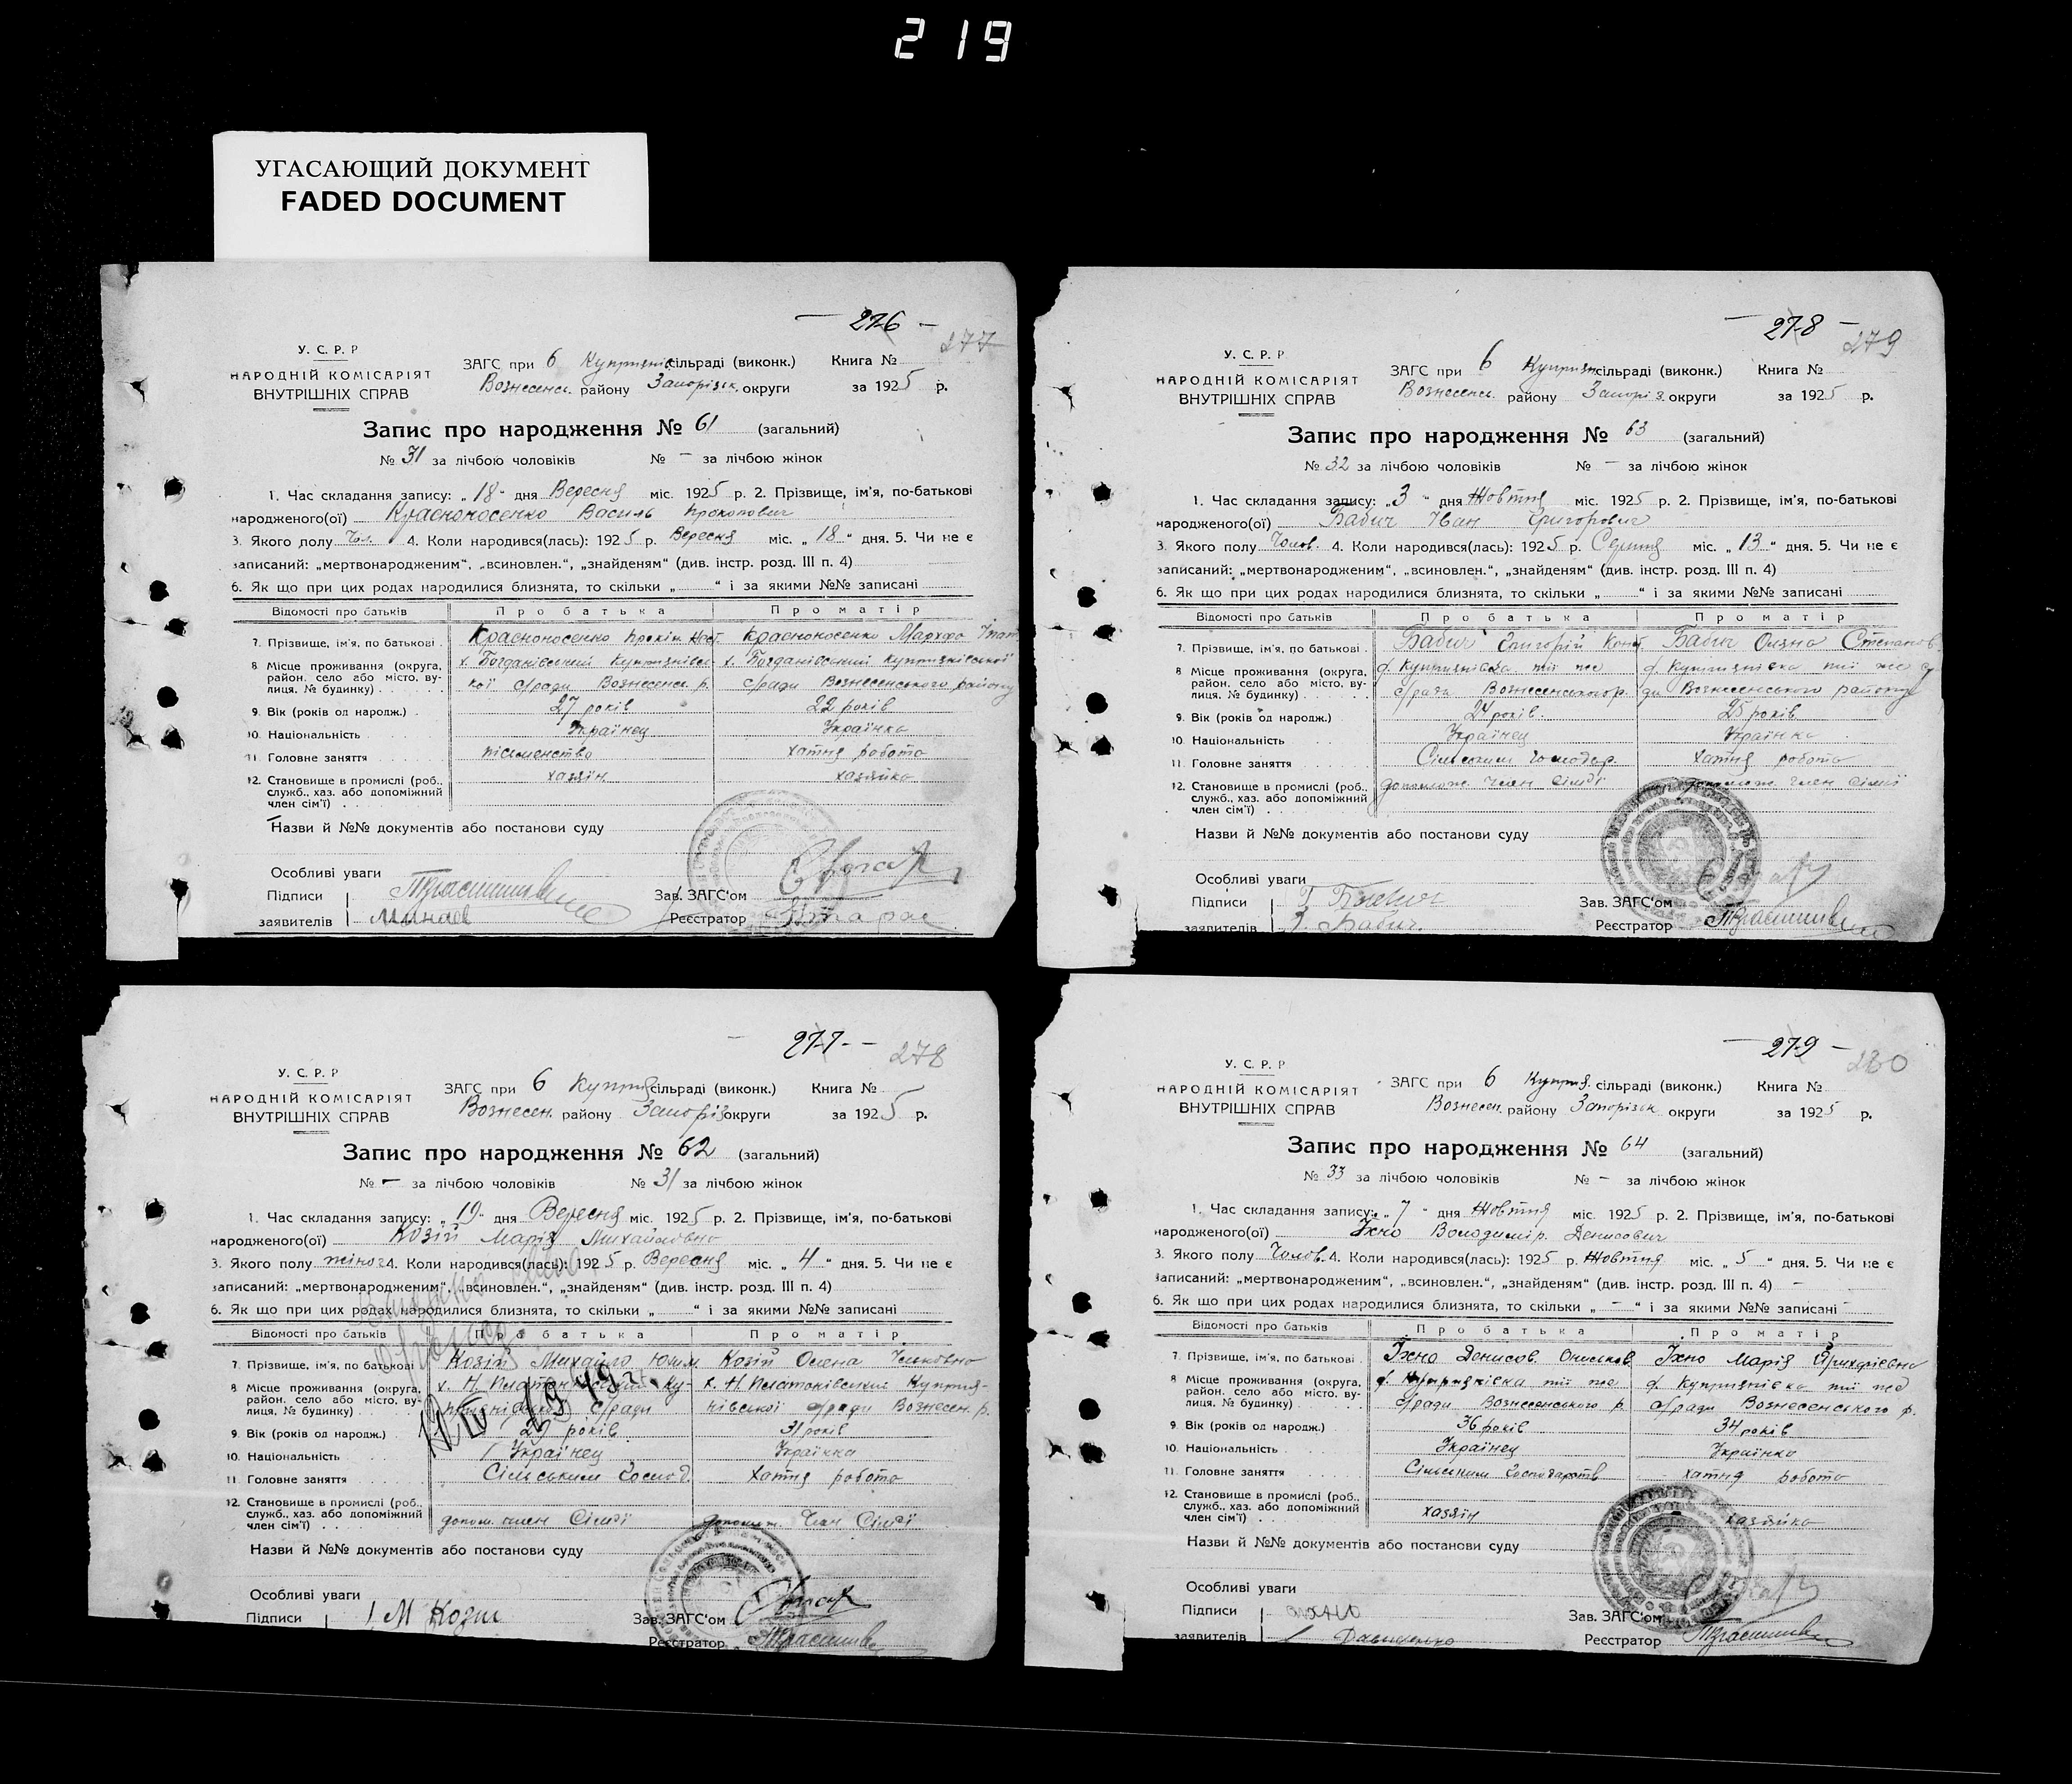 219
УГАСАЮЩИЙ ДОКУМЕНТ
FADED DOCUMENT
— 276 —
277
У. С. Р. Р
НАРОДНІЙ КОМІСАРІЯТ
ВНУТРІШНІХ СПРАВ
ЗАГС при 6 Куприянів сільраді (виконк.) Книга №
Вознесенс. району Запорізьк. округи за 1925 р.
Запис про народження № 61 (загальний)
№ 31 за лічбою чоловіків № – за лічбою жінок
1. Час складання запису: „18“ дня Вересня міс. 1925 р. 2. Прізвище, ім'я, по-батькові
народженого(ої) Красноносенко Василь Прокопович
3. Якого полу Чол. 4. Коли народився(лась): 1925 р. Вересня міс. „18“ дня. 5. Чи не є
записаний: „мертвонародженим“, „всиновлен.“, „знайденям“ (див. інстр. розд. III п. 4)
6. Як що при цих родах народилися близнята, то скільки „ “ і за якими №№ записані
Відомості про батьків Про батька Про матір
7. Прізвище, ім'я, по батькові Красноносенко Прокіп Красноносенко Мархфа
8 Місце проживання (округа, район, село або місто, вулиця, № будинку) х. Богданівський Куприянівської с/ради Вознесенс. р. х. Богданівський Куприянівської с/ради Вознесенського району
9. Вік (років од народж.) 27 років 22 років
10. Національність Українец Українка
11. Головне заняття письменство хатня робота
12. Становище в промислі (роб., служб., хаз. або допоміжний член сім'ї) хазяїн хазяйка
Назви й №№ документів або постанови суду
Особливі уваги
Підписи
заявителів Минаев
Зав. ЗАГС'ом
Реєстратор
— 278 —
279
У. С. Р. Р
НАРОДНІЙ КОМІСАРІЯТ
ВНУТРІШНІХ СПРАВ
ЗАГС при 6 Куприян сільраді (виконк.) Книга №
Вознесенс. району Запоріз. округи за 1925 р.
Запис про народження № 63 (загальний)
№ 32 за лічбою чоловіків № – за лічбою жінок
1. Час складання запису: „3“ дня Жовтня міс. 1925 р. 2. Прізвище, ім'я, по-батькові
народженого(ої) Бабич Іван Григорович
3. Якого полу Чолов. 4. Коли народився(лась): 1925 р. Серпня міс. „13“ дня. 5. Чи не є
записаний: „мертвонародженим“, „всиновлен.“, „знайденям“ (див. інстр. розд. III п. 4)
6. Як що при цих родах народилися близнята, то скільки „ “ і за якими №№ записані
Відомості про батьків Про батька Про матір
7. Прізвище, ім'я, по батькові Бабич Григорій Конст Бабич Степанов.
8 Місце проживання (округа, район, село або місто, вулиця, № будинку) с. Куприянівка тії же с/ради Вознесенського р. с. Куприянівка тії же с/ради Вознесенського району
9. Вік (років од народж.) 24 років. 25 років
10. Національність Українец Українка
11. Головне заняття Сільським Господар. хатня робота
12. Становище в промислі (роб., служб., хаз. або допоміжний член сім'ї) допомож. член сімї допомож. член сімї
Назви й №№ документів або постанови суду
Особливі уваги
Підписи
заявителів Бабич.
Зав. ЗАГС'ом
Реєстратор
— 277 —
278
У. С. Р. Р
НАРОДНІЙ КОМІСАРІЯТ
ВНУТРІШНІХ СПРАВ
ЗАГС при 6 Куприя сільраді (виконк.) Книга №
Вознесен. району Запоріз округи за 1925 р.
Запис про народження № 62 (загальний)
№ – за лічбою чоловіків № 31 за лічбою жінок
1. Час складання запису: „19“ дня Вересня міс. 1925 р. 2. Прізвище, ім'я, по-батькові
народженого(ої) Козій Марія Михайловна
3. Якого полу жіноз 4. Коли народився(лась): 1925 р. Вересня міс. „4“ дня. 5. Чи не є
записаний: „мертвонародженим“, „всиновлен.“, „знайденям“ (див. інстр. розд. III п. 4)
6. Як що при цих родах народилися близнята, то скільки „ “ і за якими №№ записані
Відомості про батьків Про батька Про матір
7. Прізвище, ім'я, по батькові Козій Михайло Козій Олена
8 Місце проживання (округа, район, село або місто, вулиця, № будинку) х. Н. Платонівський Куприянівської с/ради х. Н. Платонівський Куприянівської с/ради Вознесен. р.
9. Вік (років од народж.) 29 років 31 років
10. Національність Українец Українка
11. Головне заняття Сільським Господ. хатня робота
12. Становище в промислі (роб., служб., хаз. або допоміжний член сім'ї) допом. член Сімї допомож. член Сімї
Назви й №№ документів або постанови суду
Особливі уваги
Підписи М Козий
Зав. ЗАГС'ом
Реєстратор
— 279 —
280
У. С. Р. Р
НАРОДНІЙ КОМІСАРІЯТ
ВНУТРІШНІХ СПРАВ
ЗАГС при 6 Куприя. сільраді (виконк.) Книга №
Вознесен. району Запорізьк округи за 1925 р.
Запис про народження № 64 (загальний)
№ 33 за лічбою чоловіків № – за лічбою жінок
1. Час складання запису: „7“ дня Жовтня міс. 1925 р. 2. Прізвище, ім'я, по-батькові
народженого(ої) Їхно Володимір. Денисович
3. Якого полу Чолов. 4. Коли народився(лась): 1925 р. Жовтня міс. „5“ дня. 5. Чи не є
записаний: „мертвонародженим“, „всиновлен.“, „знайденям“ (див. інстр. розд. III п. 4) –
6. Як що при цих родах народилися близнята, то скільки „ – “ і за якими №№ записані –
Відомості про батьків Про батька Про матір
7. Прізвище, ім'я, по батькові Їхно Денисов. Їхно Марія
8 Місце проживання (округа, район, село або місто, вулиця, № будинку) с. Куприянівка тії же с/ради Вознесенського р. с. Куприянівка тії же с/ради Вознесенського р.
9. Вік (років од народж.) 36 років 34 років
10. Національність Українец Українка
11. Головне заняття Сільським Господарств хатня робота
12. Становище в промислі (роб., служб., хаз. або допоміжний член сім'ї) хазяїн хазяйка
Назви й №№ документів або постанови суду
Особливі уваги
Підписи
заявителів
Зав. ЗАГС'ом
Реєстратор